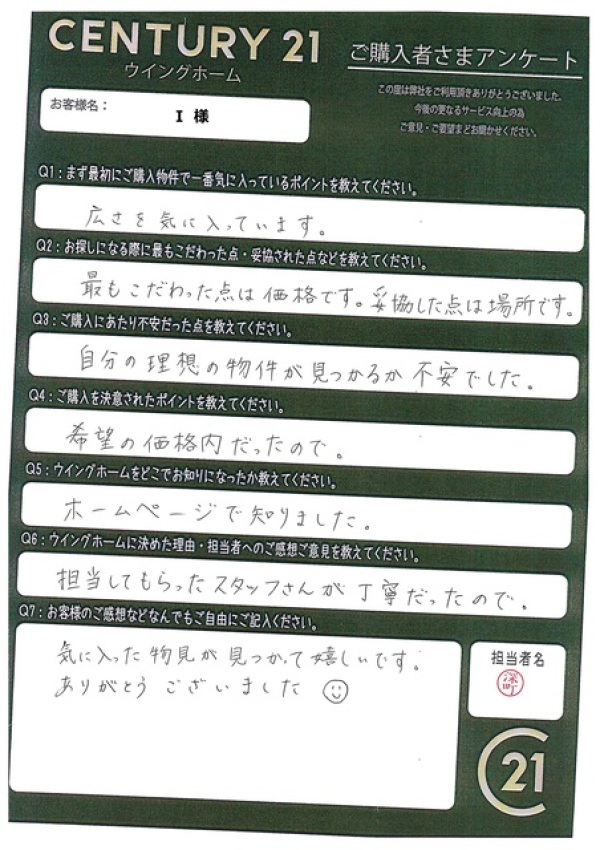 CENTURY 21
ウイングホーム
ご購入者さまアンケート
この度は弊社をご利用頂きありがとうございました。
今後の更なるサービス向上の為
ご意見・ご要望まどお聞かせください。
お客様名：
I 様
Q1：まず最初にご購入物件で一番気に入っているポイントを教えてください。
広さを気に入っています。
Q2：お探しになる際に最もこだわった点・妥協された点などを教えてください。
最もこだわった点は価格です。妥協した点は場所です。
Q3：ご購入にあたり不安だった点を教えてください。
自分の理想の物件が見つかるか不安でした。
Q4：ご購入を決意されたポイントを教えてください。
希望の価格内だったので。
Q5：ウイングホームをどこでお知りになったか教えてください。
ホームページで知りました。
Q6：ウイングホームに決めた理由・担当者へのご感想ご意見を教えてください。
担当してもらったスタッフさんが丁寧だったので。
Q7：お客様のご感想などなんでもご自由にご記入ください。
気に入った物見が見つかって嬉しいです。
ありがとうございました
担当者名
深町
C21